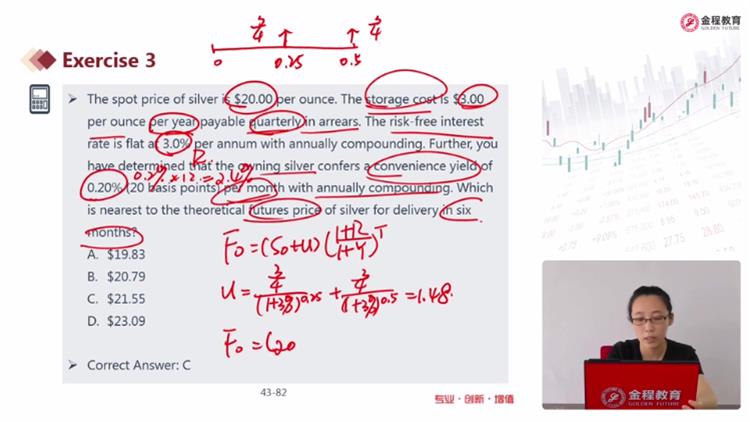 金程教育
GOLDEN FUTURE
3/4
3/4
0
0.25
0.5
Exercise 3
The spot price of silver is $20.00 per ounce. The storage cost is $3.00
per ounce per year payable quarterly in arrears. The risk-free interest
rate is flat at 3.0% per annum with annually compounding. Further, you
R
have determined that the owning silver confers a convenience yield of
0.2%×12=2.4%
0.20% (20 basis points) per month with annually compounding. Which
is nearest to the theoretical futures price of silver for delivery in six
months?
A. $19.83
B. $20.79
C. $21.55
D. $23.09
F0=(S0+U)(1+R/1+Y)^T
U=3/4/(1+3%)^0.25+3/4/(1+3%)^0.5=1.48.
F0=(20
Correct Answer: C
43-82
专业·创新·增值
金程教育
GOLDEN FUTURE